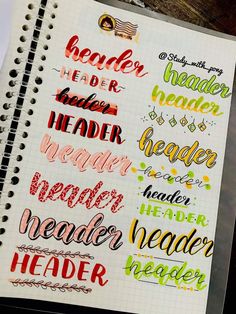 @Study_with_png
header
HEADER
header
HEADER
header
header
header
HEADER
header
header
header
header
header
HEADER
header
header